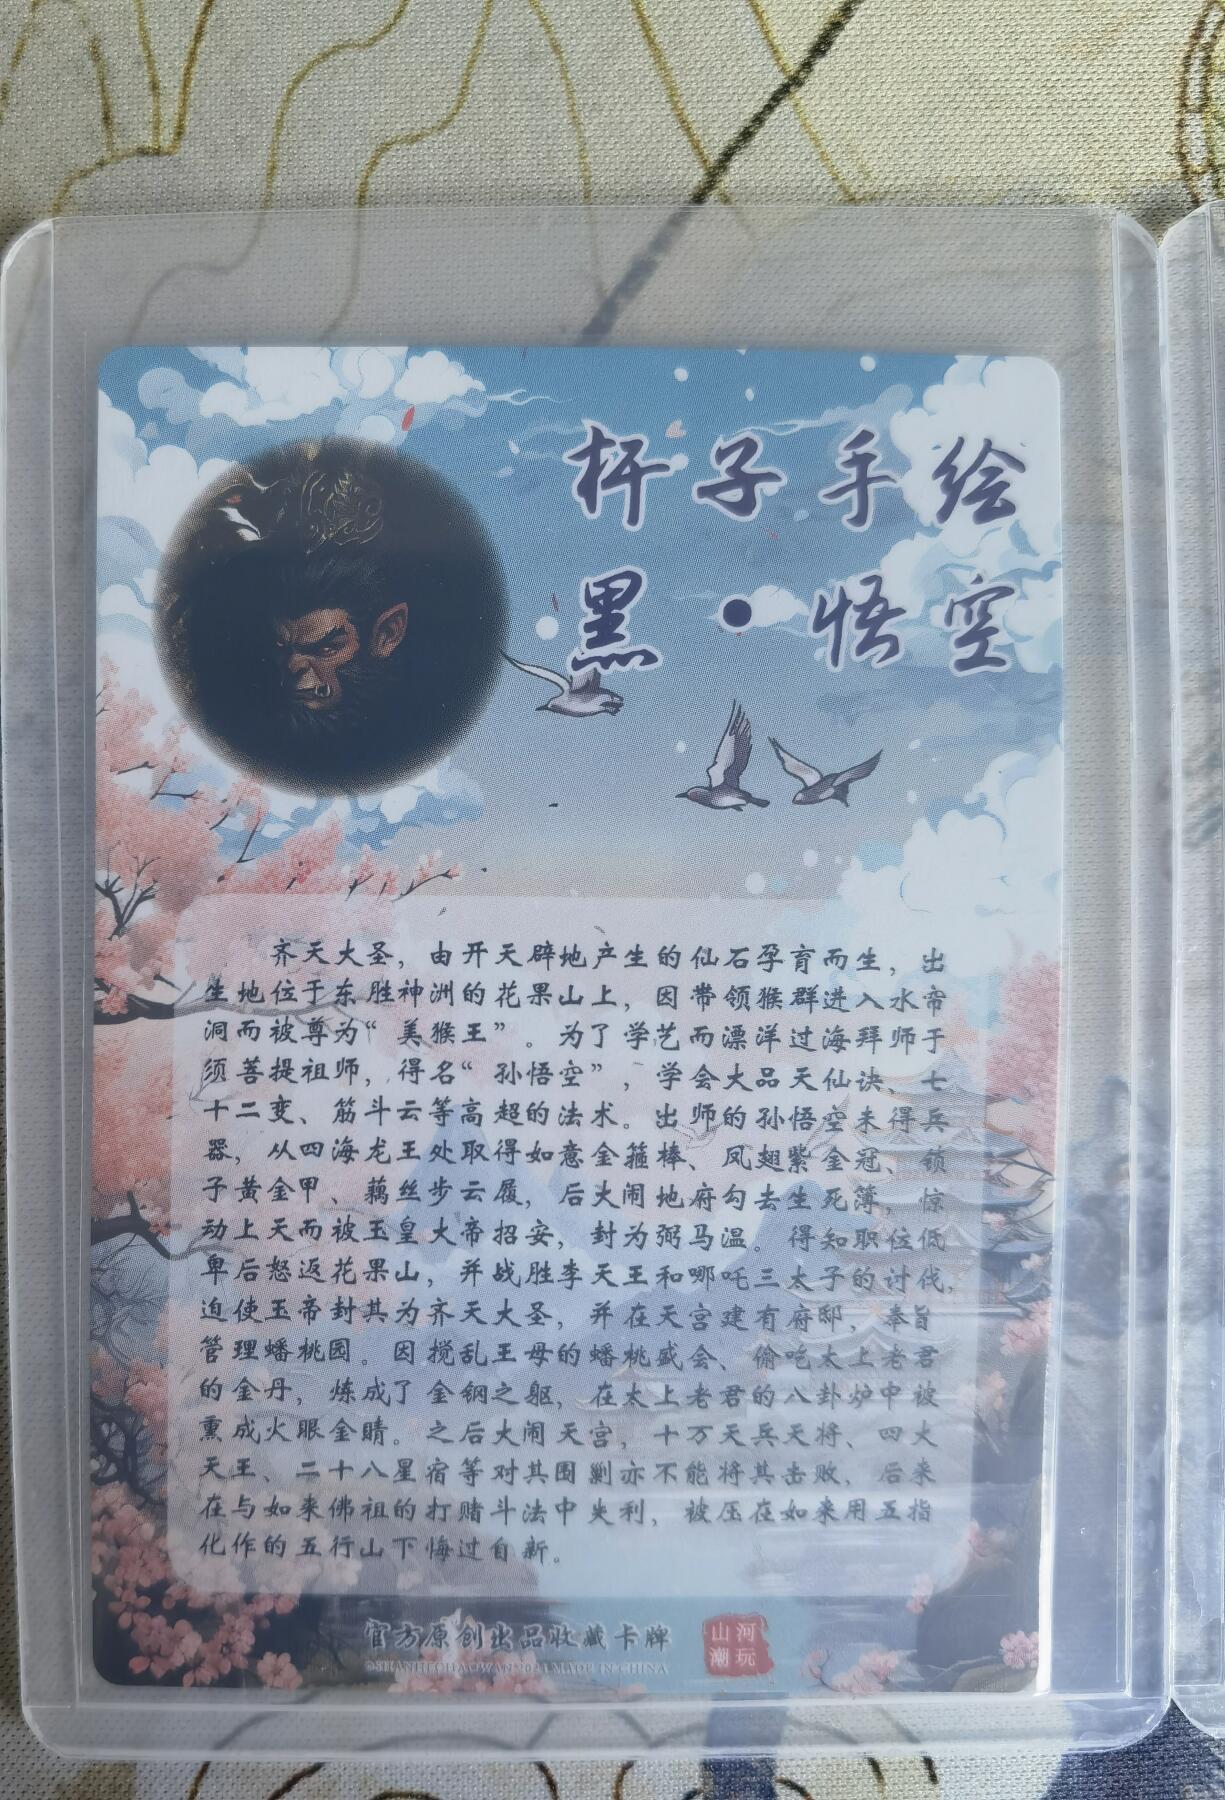 杆子手绘
黑·悟空
齐天大圣，由开天辟地产生的仙石孕育而生，出
生地位于东胜神洲的花果山上，因带领猴群进入水帘
洞而被尊为“美猴王”。为了学艺而漂洋过海拜师于
须菩提祖师，得名“孙悟空”，学会大品天仙诀、七
十二变、筋斗云等高超的法术。出师的孙悟空未得兵
器，从四海龙王处取得如意金箍棒、凤翅紫金冠、锁
子黄金甲、藕丝步云履，后大闹地府勾去生死簿，惊
动上天而被玉皇大帝招安，封为弼马温。得知职位低
卑后怒返花果山，并战胜李天王和哪吒三太子的讨伐，
迫使玉帝封其为齐天大圣，并在天宫建有府邸，奉旨
管理蟠桃园。因搅乱王母的蟠桃盛会、偷吃太上老君
的金丹，炼成了金钢之躯，在太上老君的八卦炉中被
熏成火眼金睛。之后大闹天宫，十万天兵天将、四大
天王、二十八星宿等对其围剿亦不能将其击败，后来
在与如来佛祖的打赌斗法中失利，被压在如来用五指
化作的五行山下悔过自新。
官方原创出品收藏卡牌
©SHANHECHAOWAN2024 MADE IN CHINA
山河
潮玩